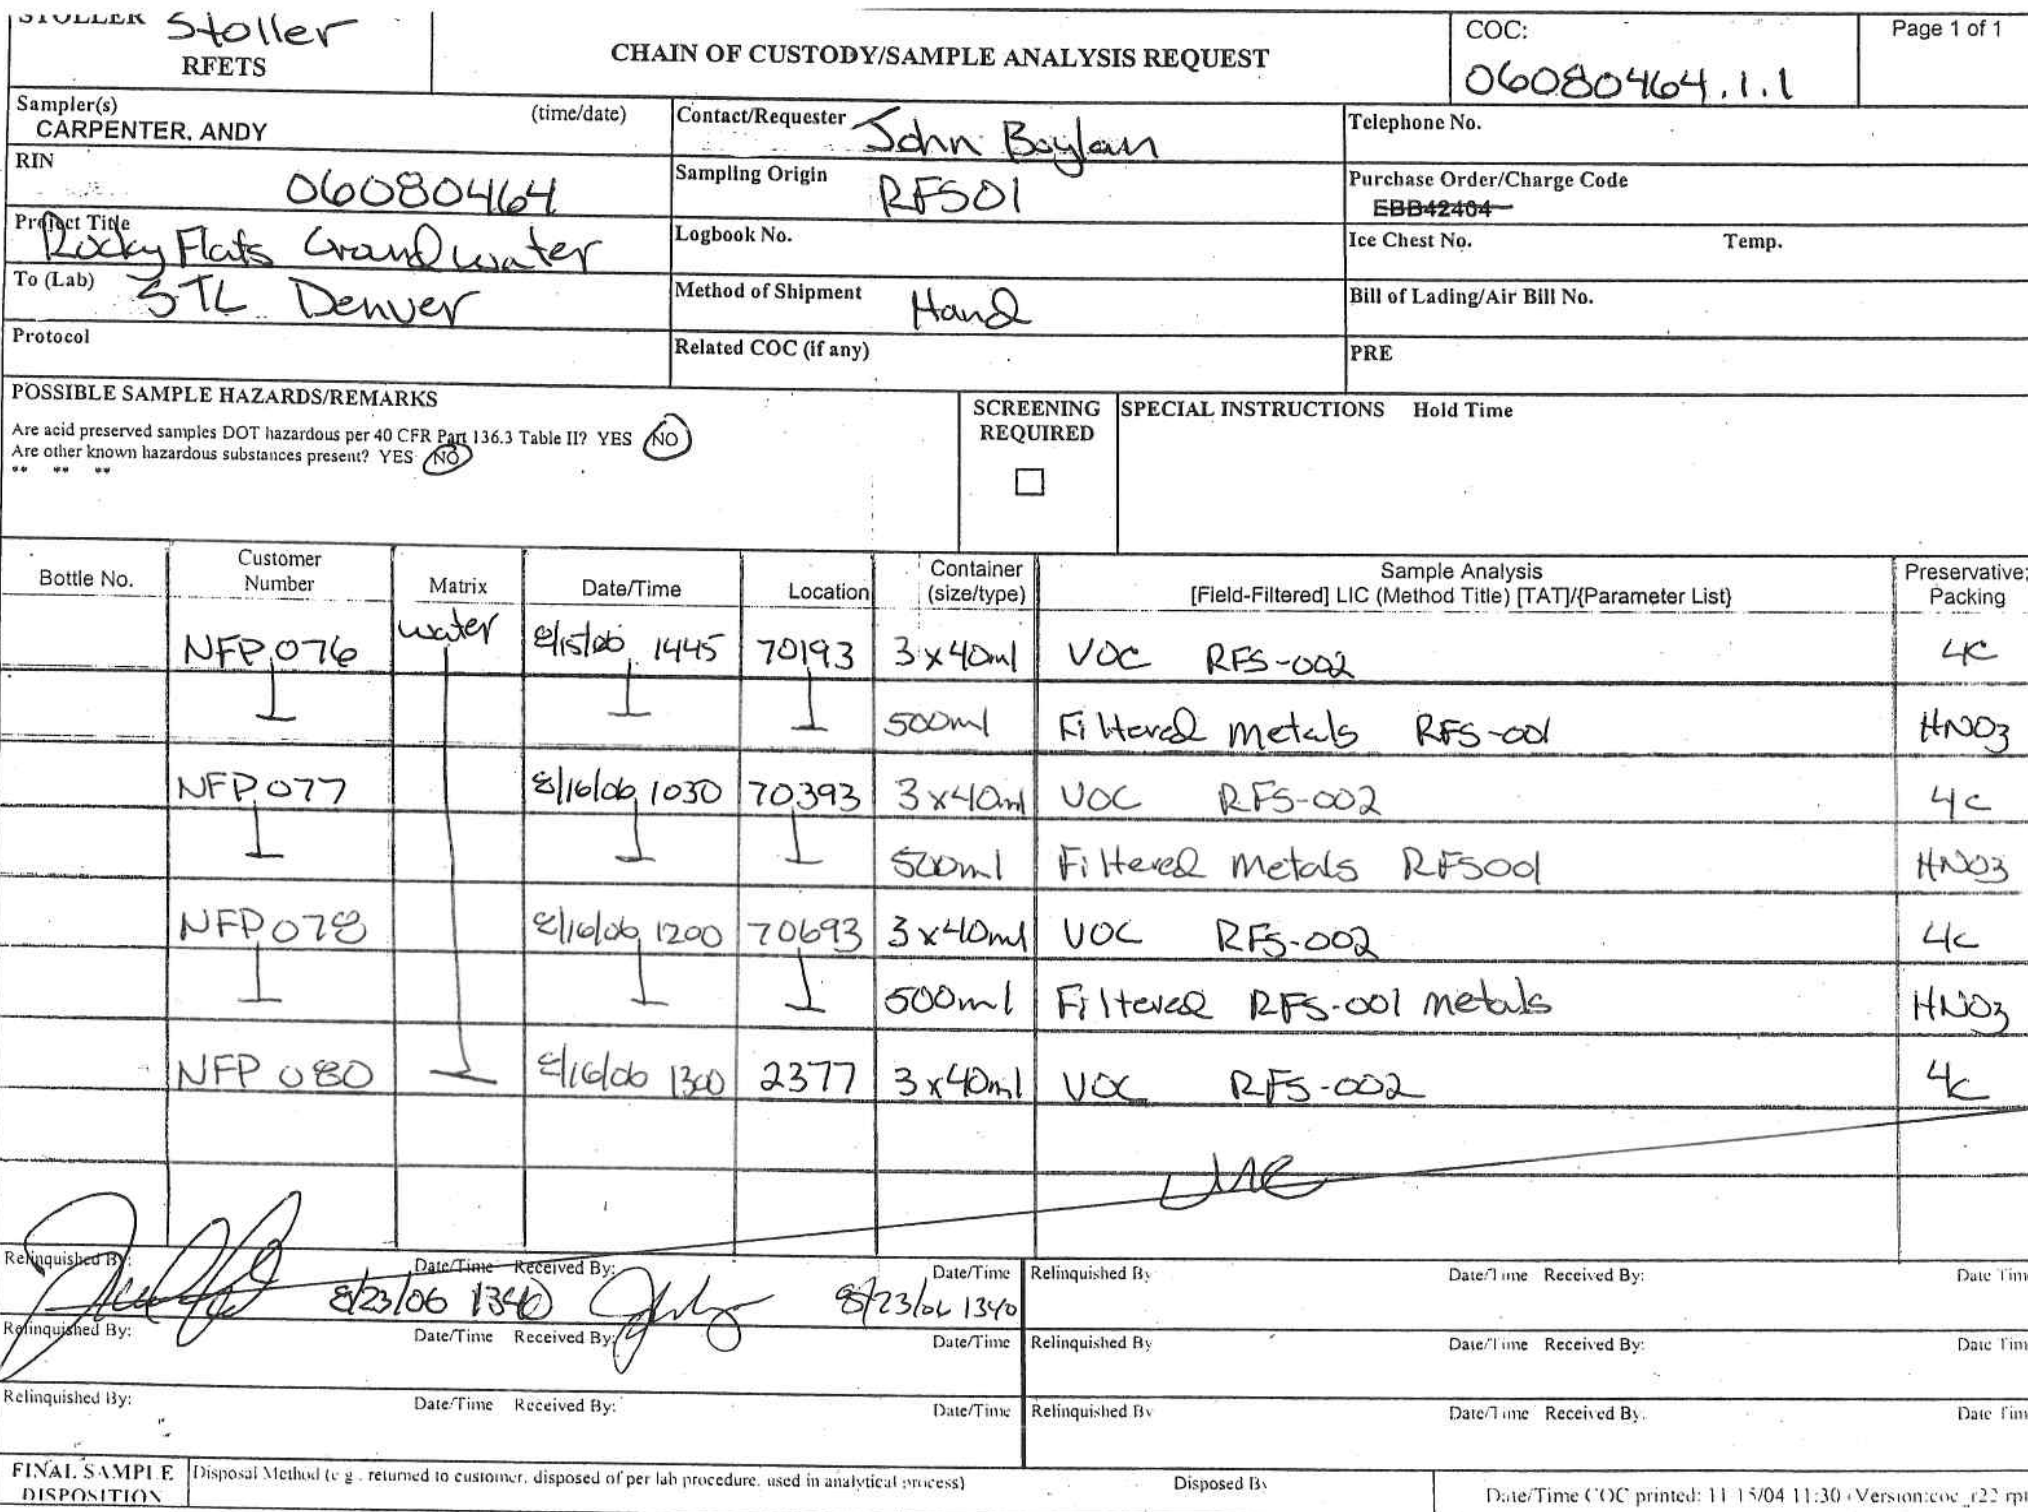 STOLLER Stoller
RFETS
CHAIN OF CUSTODY/SAMPLE ANALYSIS REQUEST
COC:
06080464.1.1
Page 1 of 1
Sampler(s) (time/date)
CARPENTER, ANDY
Contact/Requester John Boylan
Telephone No.
RIN
06080464
Sampling Origin RFS01
Purchase Order/Charge Code
EBB42404
Project Title
Rocky Flats Groundwater
Logbook No.
Ice Chest No. Temp.
To (Lab) STL Denver
Method of Shipment Hand
Bill of Lading/Air Bill No.
Protocol
Related COC (if any)
PRE
POSSIBLE SAMPLE HAZARDS/REMARKS
Are acid preserved samples DOT hazardous per 40 CFR Part 136.3 Table II? YES NO
Are other known hazardous substances present? YES NO
** ** **
SCREENING
REQUIRED
SPECIAL INSTRUCTIONS Hold Time
Bottle No.
Customer
Number
Matrix
Date/Time
Location
Container
(size/type)
Sample Analysis
[Field-Filtered] LIC (Method Title) [TAT]/{Parameter List}
Preservative;
Packing
NFP076 water 8/15/06 1445 70193 3x40ml VOC RFS-002 4C
500ml Filtered metals RFS-001 HNO3
NFP077 8/16/06 1030 70393 3x40ml VOC RFS-002 4C
500ml Filtered metals RFS001 HNO3
NFP078 8/16/06 1200 70693 3x40ml VOC RFS-002 4C
500ml Filtered RFS-001 metals HNO3
NFP 080 8/16/06 1300 2377 3x40ml VOC RFS-002 4C
Relinquished By: Date/Time Received By: Date/Time Relinquished By Date/Time Received By: Date Tim
8/23/06 1340 8/23/06 1340
Relinquished By: Date/Time Received By: Date/Time Relinquished By Date/Time Received By: Date Tim
Relinquished By: Date/Time Received By: Date/Time Relinquished By Date/Time Received By. Date Tim
FINAL SAMPLE
DISPOSITION
Disposal Method (e g . returned to customer, disposed of per lab procedure, used in analytical process)
Disposed By
Date/Time COC printed: 11 15/04 11:30 (Version:coc_r22 rpt